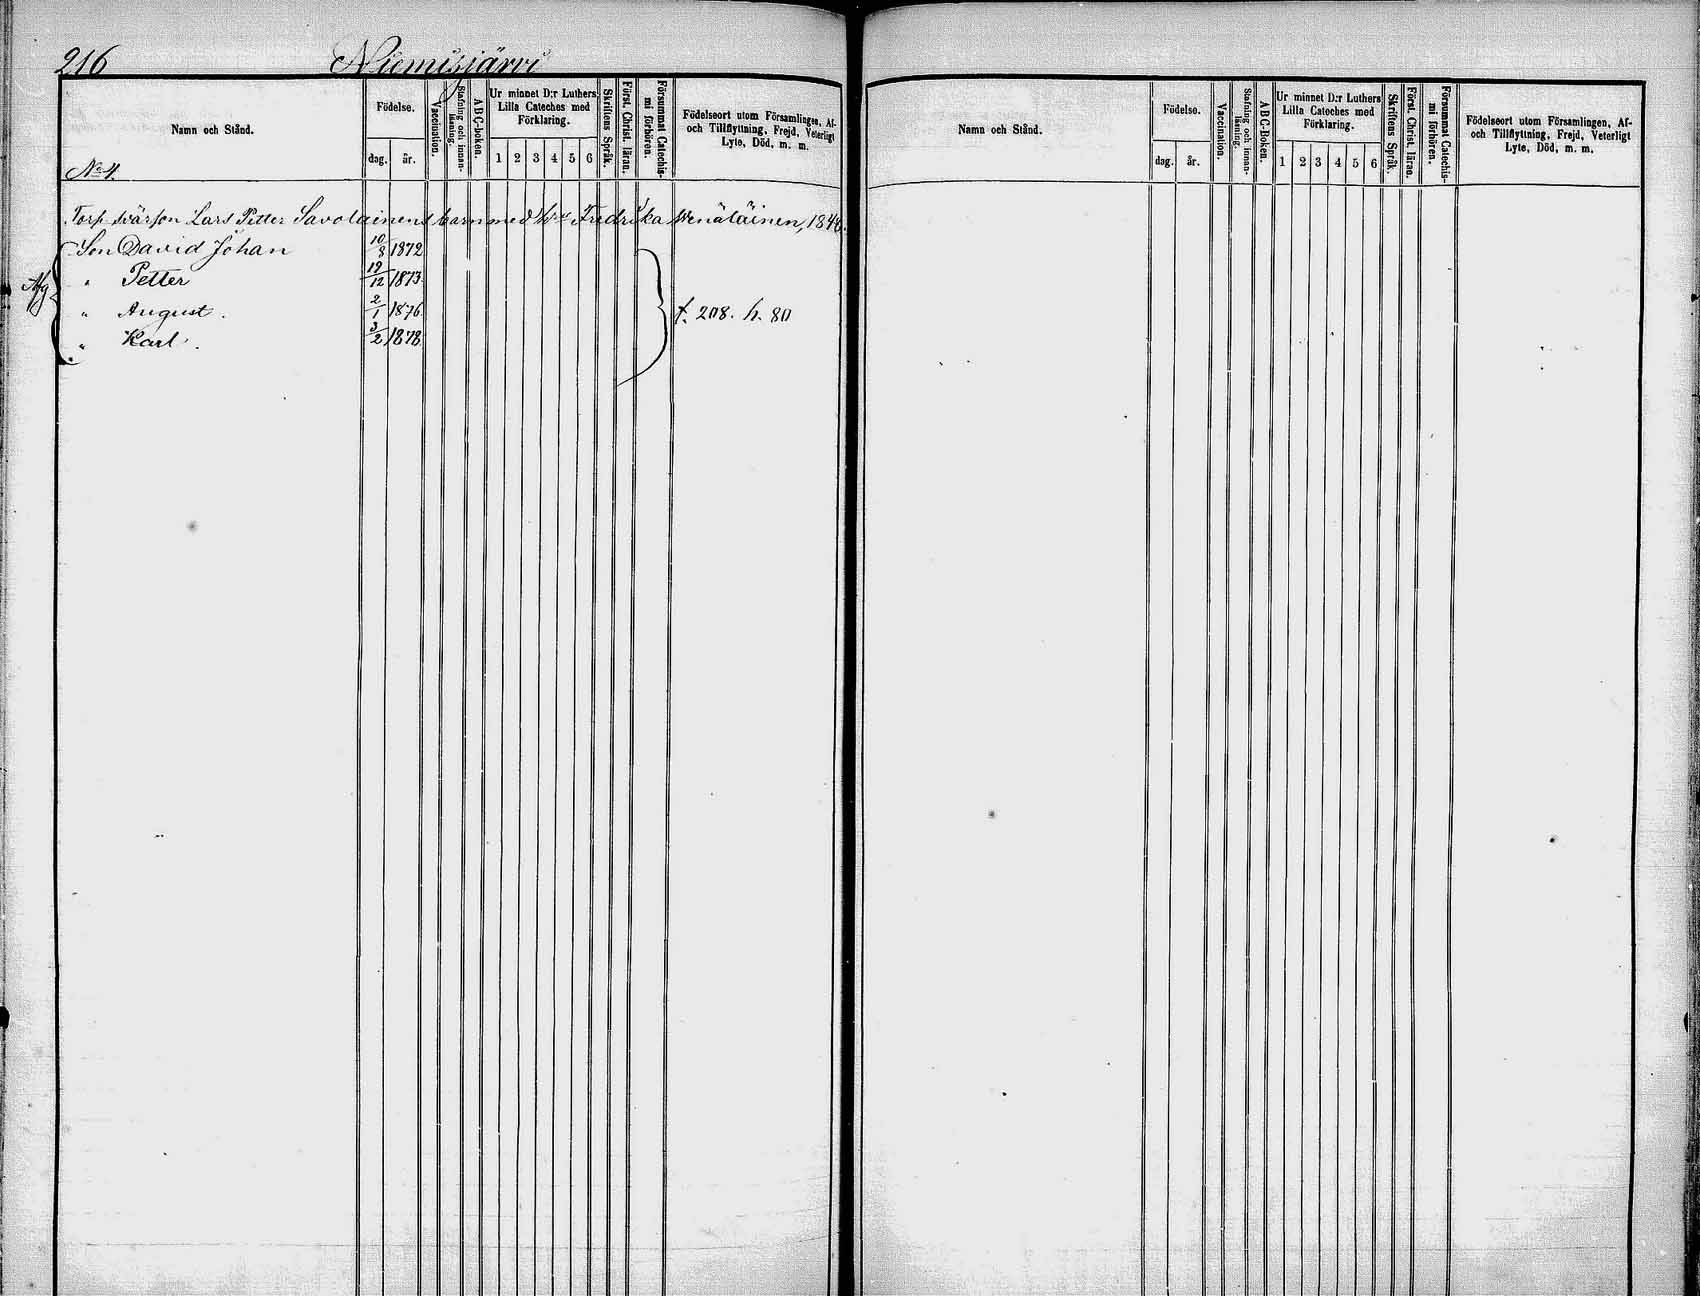 216 Niemisjärvi
Namn och Stånd.
Födelse.
dag. år.
Vaccination.
Stafning och innanläsning.
ABC-boken.
Ur minnet D:r Luthers
Lilla Cateches med
Förklaring.
1 2 3 4 5 6
Skriftens Språk.
Först. Christ. läran.
Försummat Catechismi förhören.
Födelseort utom Församlingen, Af-
och Tillflyttning, Frejd, Veterligt
Lyte, Död, m. m.
No 4.
Torp. svärson Lars Petter Savolainens barn med h:u Fredrika Wenäläinen, 1848.
Son David Johan 10/8 1872
" Petter 19/12 1873
" August. 2/1 1876 f. 208. h. 80
" Karl. 3/2 1878
Namn och Stånd.
Födelse.
dag. år.
Vaccination.
Stafning och innanläsning.
ABC-Boken.
Ur minnet D:r Luthers
Lilla Cateches med
Förklaring.
1 2 3 4 5 6
Skriftens Språk.
Först. Christ. läran.
Försummat Catechismi förhören.
Födelseort utom Församlingen, Af-
och Tillflyttning, Frejd, Veterligt
Lyte, Död, m. m.